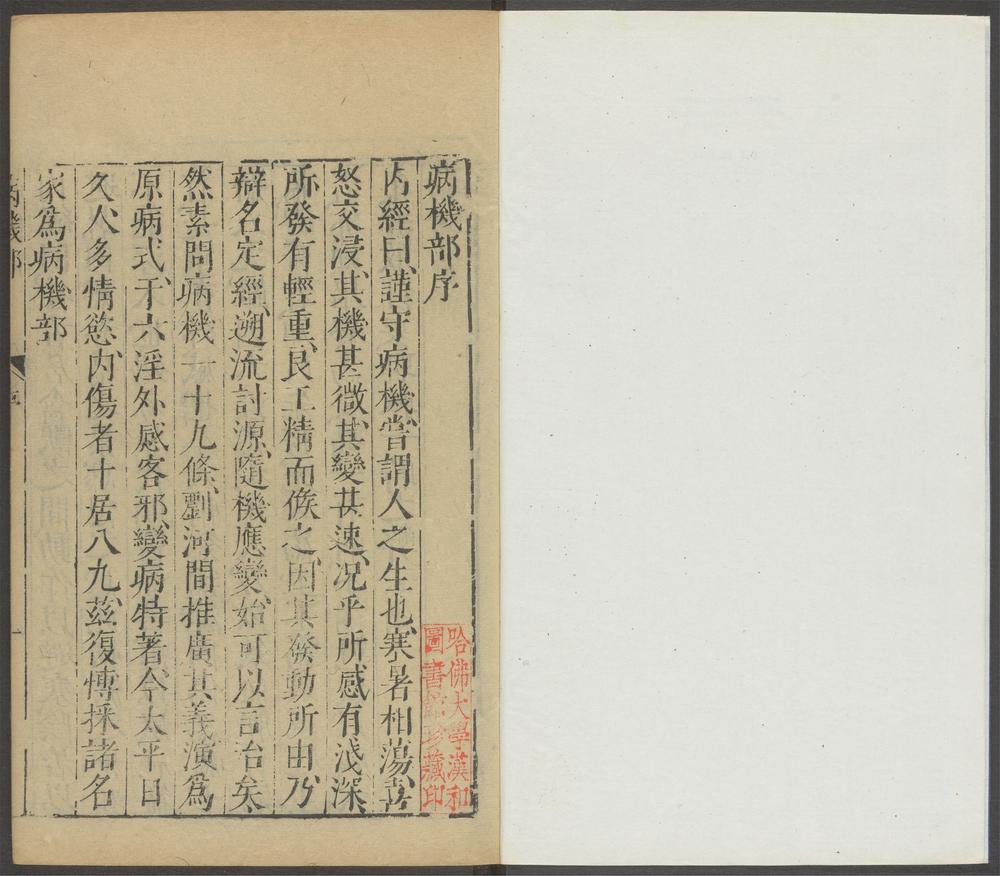 病機部序
內經曰、謹守病機、嘗謂人之生也、寒暑相蕩、喜
怒交浸、其機甚微、其變甚速、况乎所感有浅深、
所發有輕重、良工精而候之、因其發動所由、乃
辯名定經、遡流討源、隨機應變、始可以言治矣、
然素問病機一十九條、劉河間推廣其義演爲
原病式、于六淫外感客邪、變病特著、今太平日
久、人多情慾、內傷者十居八九、茲復博採諸名
家爲病機部
病機部
一
哈佛大學漢和
圖書館珍藏印